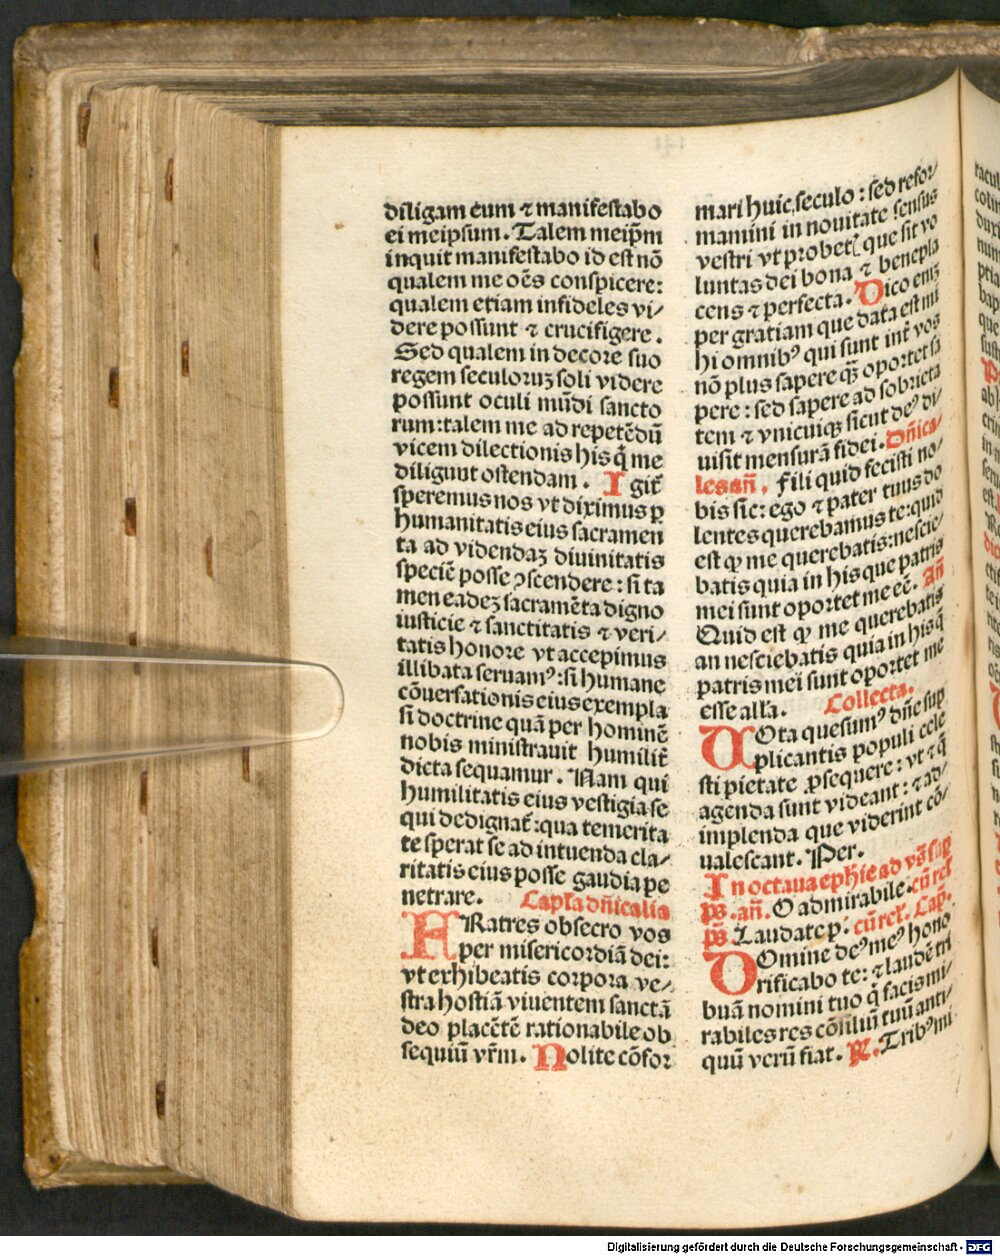 diligam eum ⁊ manifestabo
ei meipsum. Talem meip̄m
inquit manifestabo id est nō
qualem me oēs conspicere:
qualem etiam infideles vi⸗
dere possunt ⁊ crucifigere.
Sed qualem in decore suo
regem seculoruꝫ soli videre
possunt oculi mūdi sancto
rum: talem me ad repetēdū
vicem dilectionis his q̄ me
diligunt ostendam. Igit̄
speremus nos vt diximus ꝑ
humanitatis eius sacramen
ta ad videndaꝫ diuinitatis
speciē posse ꝯscendere: si ta
men eadeꝫ sacramēta digno
iusticie ⁊ sanctitatis ⁊ veri⸗
tatis honore vt accepimus
illibata seruamꝰ: si humane
cōuersationis eius exempla
si doctrine quā per hominē
nobis ministrauit humilit̄
dicta sequamur. Nam qui
humilitatis eius vestigia se
qui dedignat̄: qua temerita
te sperat se ad intuenda cla⸗
ritatis eius posse gaudia pe
netrare. Capl̄a dn̄icalia
FRatres obsecro vos
per misericordiā dei:
vt exhibeatis corpora ve⸗
stra hostiā viuentem sanctā
deo placētē rationabile ob
sequiū vr̄m. Nolite cōfor
mari huic seculo: sed refor⸗
mamini in nouitate sensus
vestri vt probet̄ que sit vo
luntas dei bona ⁊ benepla
cens ⁊ perfecta. Dico eniꝫ
per gratiam que data est mi
hi omnibꝰ qui sunt int̄ vos
nō plus sapere qꝫ̄ oportet sa
pere: sed sapere ad sobrieta
tem ⁊ vnicuiqꝫ sicut deꝰ di⸗
uisit mensurā fidei. Dn̄ica⸗
les an̄. Fili quid fecisti no⸗
bis sic: ego ⁊ pater tuus do
lentes querebamus te: quid
est ꝙ me querebatis: nescie⸗
batis quia in his que patris
mei sunt oportet me eē. An̄
Quid est ꝙ me querebatis
an nesciebatis quia in his q̄
patris mei sunt oportet me
esse all'a. Collecta.
UOta quesumꝰ dn̄e sup
plicantis populi cele
sti pietate ꝓsequere: vt ⁊ q̄
agenda sunt videant: ⁊ ad⸗
implenda que viderint cō⸗
ualescant. Per.
In octaua ephie ad vs̄ sup
ps̄. an̄. O admirabile. cū rel̄
ps̄ Laudate p. cū rel̄. Cap̄.
DOmine deꝰ meꝰ hono
rificabo te: ⁊ laudē tri
buā nomini tuo q̄ facis mi⸗
rabiles res cōsiliū tuū anti⸗
quū verū fiat. ℟. Tribꝰ mi
Digitalisierung gefördert durch die Deutsche Forschungsgemeinschaft - DFG